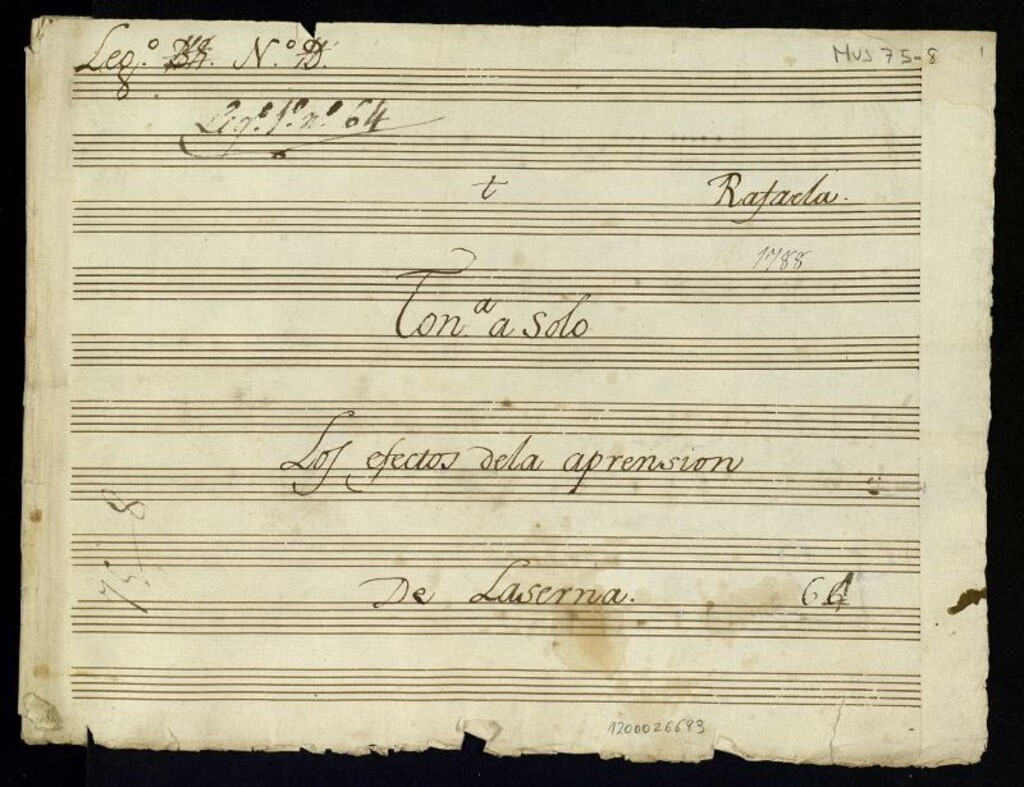 Leg.º Nº
MUS 75-8
1
Leg.º 1º nº 64
t
Rafaela.
1788
Ton.ª a solo
Los efectos dela aprension
75-8
De Laserna.
1200026693